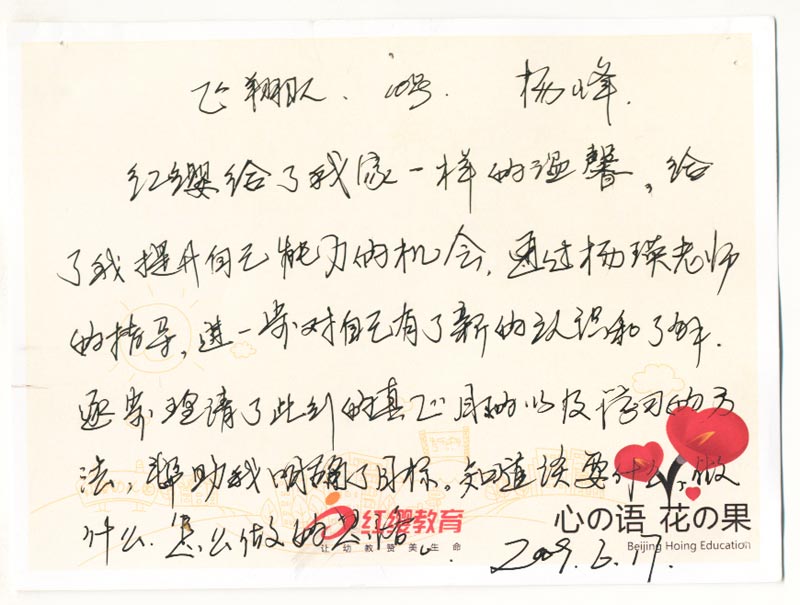 飞翔队. 10号. 杨峰.
红缨给了我家一样的温馨,给
了我提升自己能力的机会.通过杨瑛老师
的指导,进一步对自己有了新的认识和了解.
逐步理请了此刻的真正目的以及学习的方
法,帮助我明确了目标。知道该要什么,做
什么.怎么做的思路。
红缨教育
让幼教赞美生命
心の语 花の果
Beijing Hoing Education
2009.6.17.